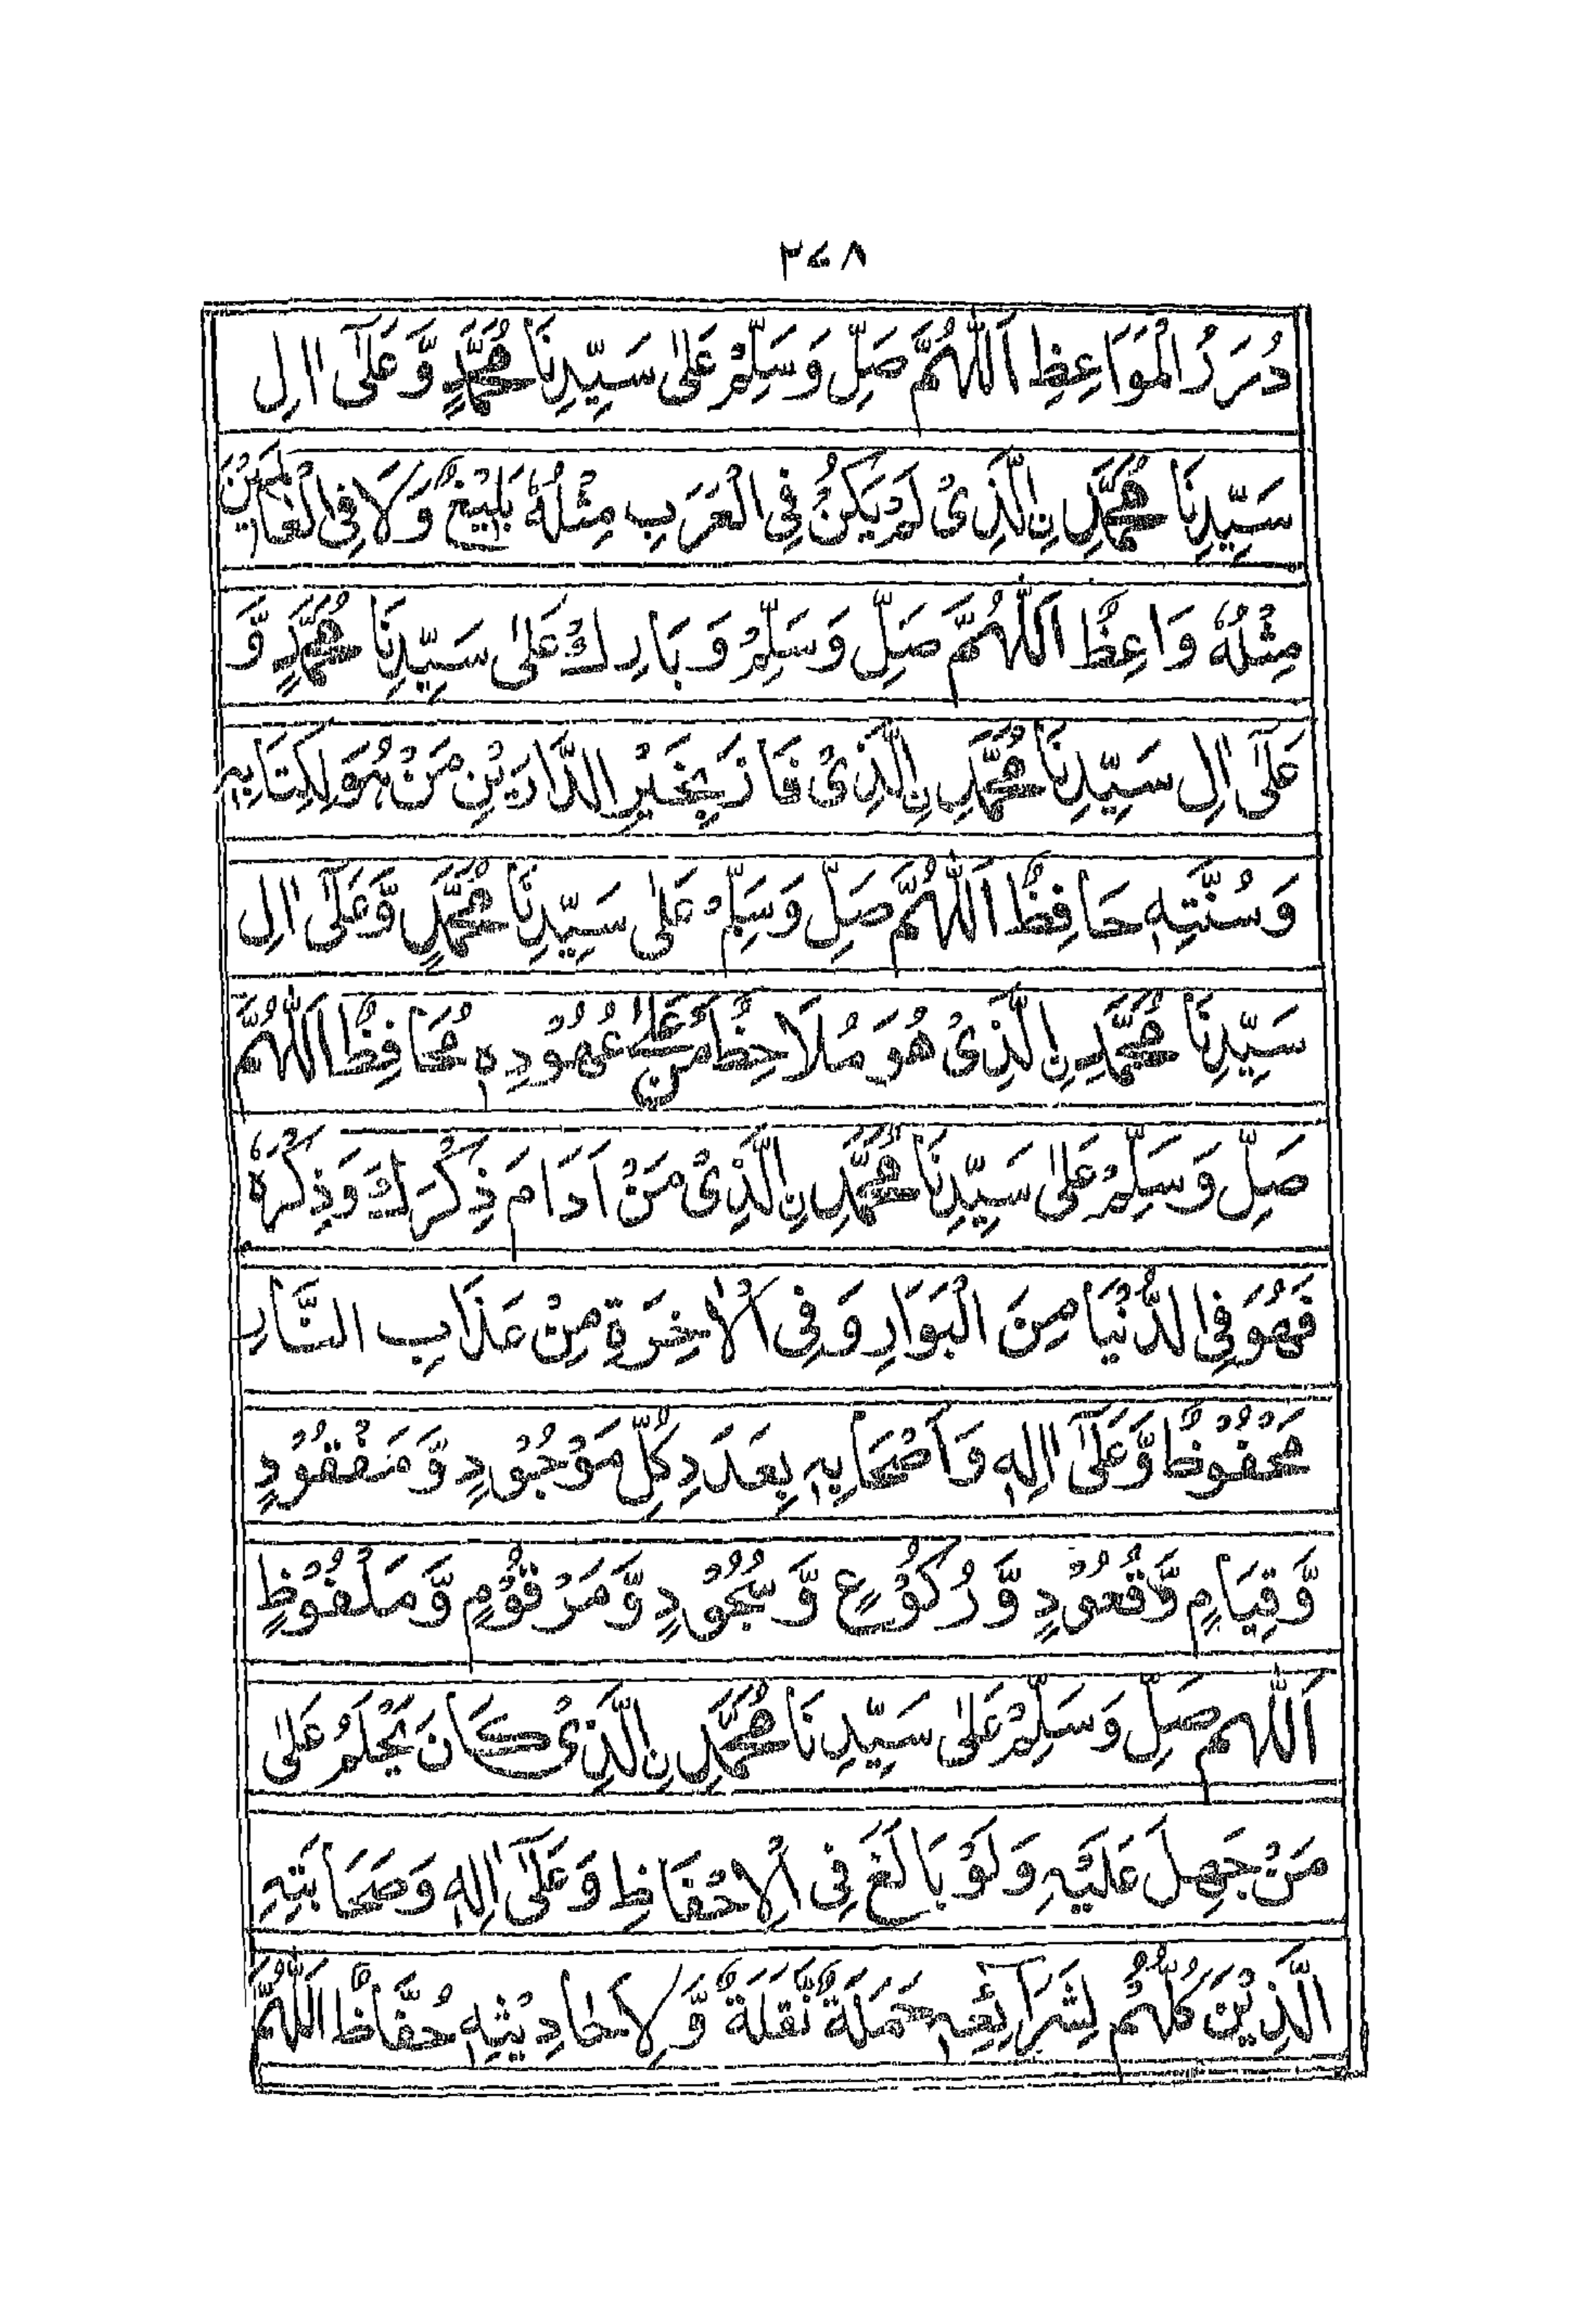 ٢٧٨
دُرَرُ الْمَوَاعِظِ اَللّٰهُمَّ صَلِّ وَسَلِّمْ عَلٰى سَيِّدِنَا مُحَمَّدٍ وَّعَلٰٓى اٰلِ
سَيِّدِنَا مُحَمَّدِ نِ الَّذِىْ لَمْ يَكُنْ فِى الْعَرَبِ مِثْلُهٗ بَلِيْغٌ وَّلَا فِى الْعَالَمِيْنَ
مِثْلُهٗ وَاعِظٌ اَللّٰهُمَّ صَلِّ وَسَلِّمْ وَبَارِكْ عَلٰى سَيِّدِنَا مُحَمَّدٍ وَّ
عَلٰٓى اٰلِ سَيِّدِنَا مُحَمَّدِ نِ الَّذِىْ فَازَ بِخَيْرِ الدَّارَيْنِ مَنْ هُوَ لِكِتَابِهٖ
وَسُنَّتِهٖ حَافِظٌ اَللّٰهُمَّ صَلِّ وَسَلِّمْ عَلٰى سَيِّدِنَا مُحَمَّدٍ وَّعَلٰٓى اٰلِ
سَيِّدِنَا مُحَمَّدِ نِ الَّذِىْ هُوَ مُلَاحِظُ مَنْ عَلٰى عُهُوْدِهٖ مُحَافِظٌ اَللّٰهُمَّ
صَلِّ وَسَلِّمْ عَلٰى سَيِّدِنَا مُحَمَّدِ نِ الَّذِىْ مَنْ اَدَامَ ذِكْرَكَ وَذِكْرَهٗ
فَهُوَ فِى الدُّنْيَا مِنَ الْبَوَارِ وَفِى الْاٰخِرَةِ مِنْ عَذَابِ النَّارِ
مَحْفُوْظٌ وَّعَلٰٓى اٰلِهٖ وَاَصْحَابِهٖ بِعَدَدِ كُلِّ مَوْجُوْدٍ وَّمَفْقُوْدٍ
وَّقِيَامٍ وَّقُعُوْدٍ وَّرُكُوْعٍ وَّسُجُوْدٍ وَّمَرْقُوْمٍ وَّمَلْفُوْظٍ
اَللّٰهم صَلِّ وَسَلِّمْ عَلٰى سَيِّدِنَا مُحَمَّدِ نِ الَّذِىْ كَانَ يَحْلَمُ عَلٰى
مَنْ جَهِلَ عَلَيْهِ وَلَوْ بَالَغَ فِى الْاِحْفَاظِ وَعَلٰٓى اٰلِهٖ وَصَحَابَتِهِ
الَّذِيْنَ كُلُّهُمْ لِشَرَآئِعِهٖ حَمَلَةٌ نَّقَلَةٌ وَّلِاَحَادِيْثِهٖ حُفَّاظٌ اَللّٰهُمَّ